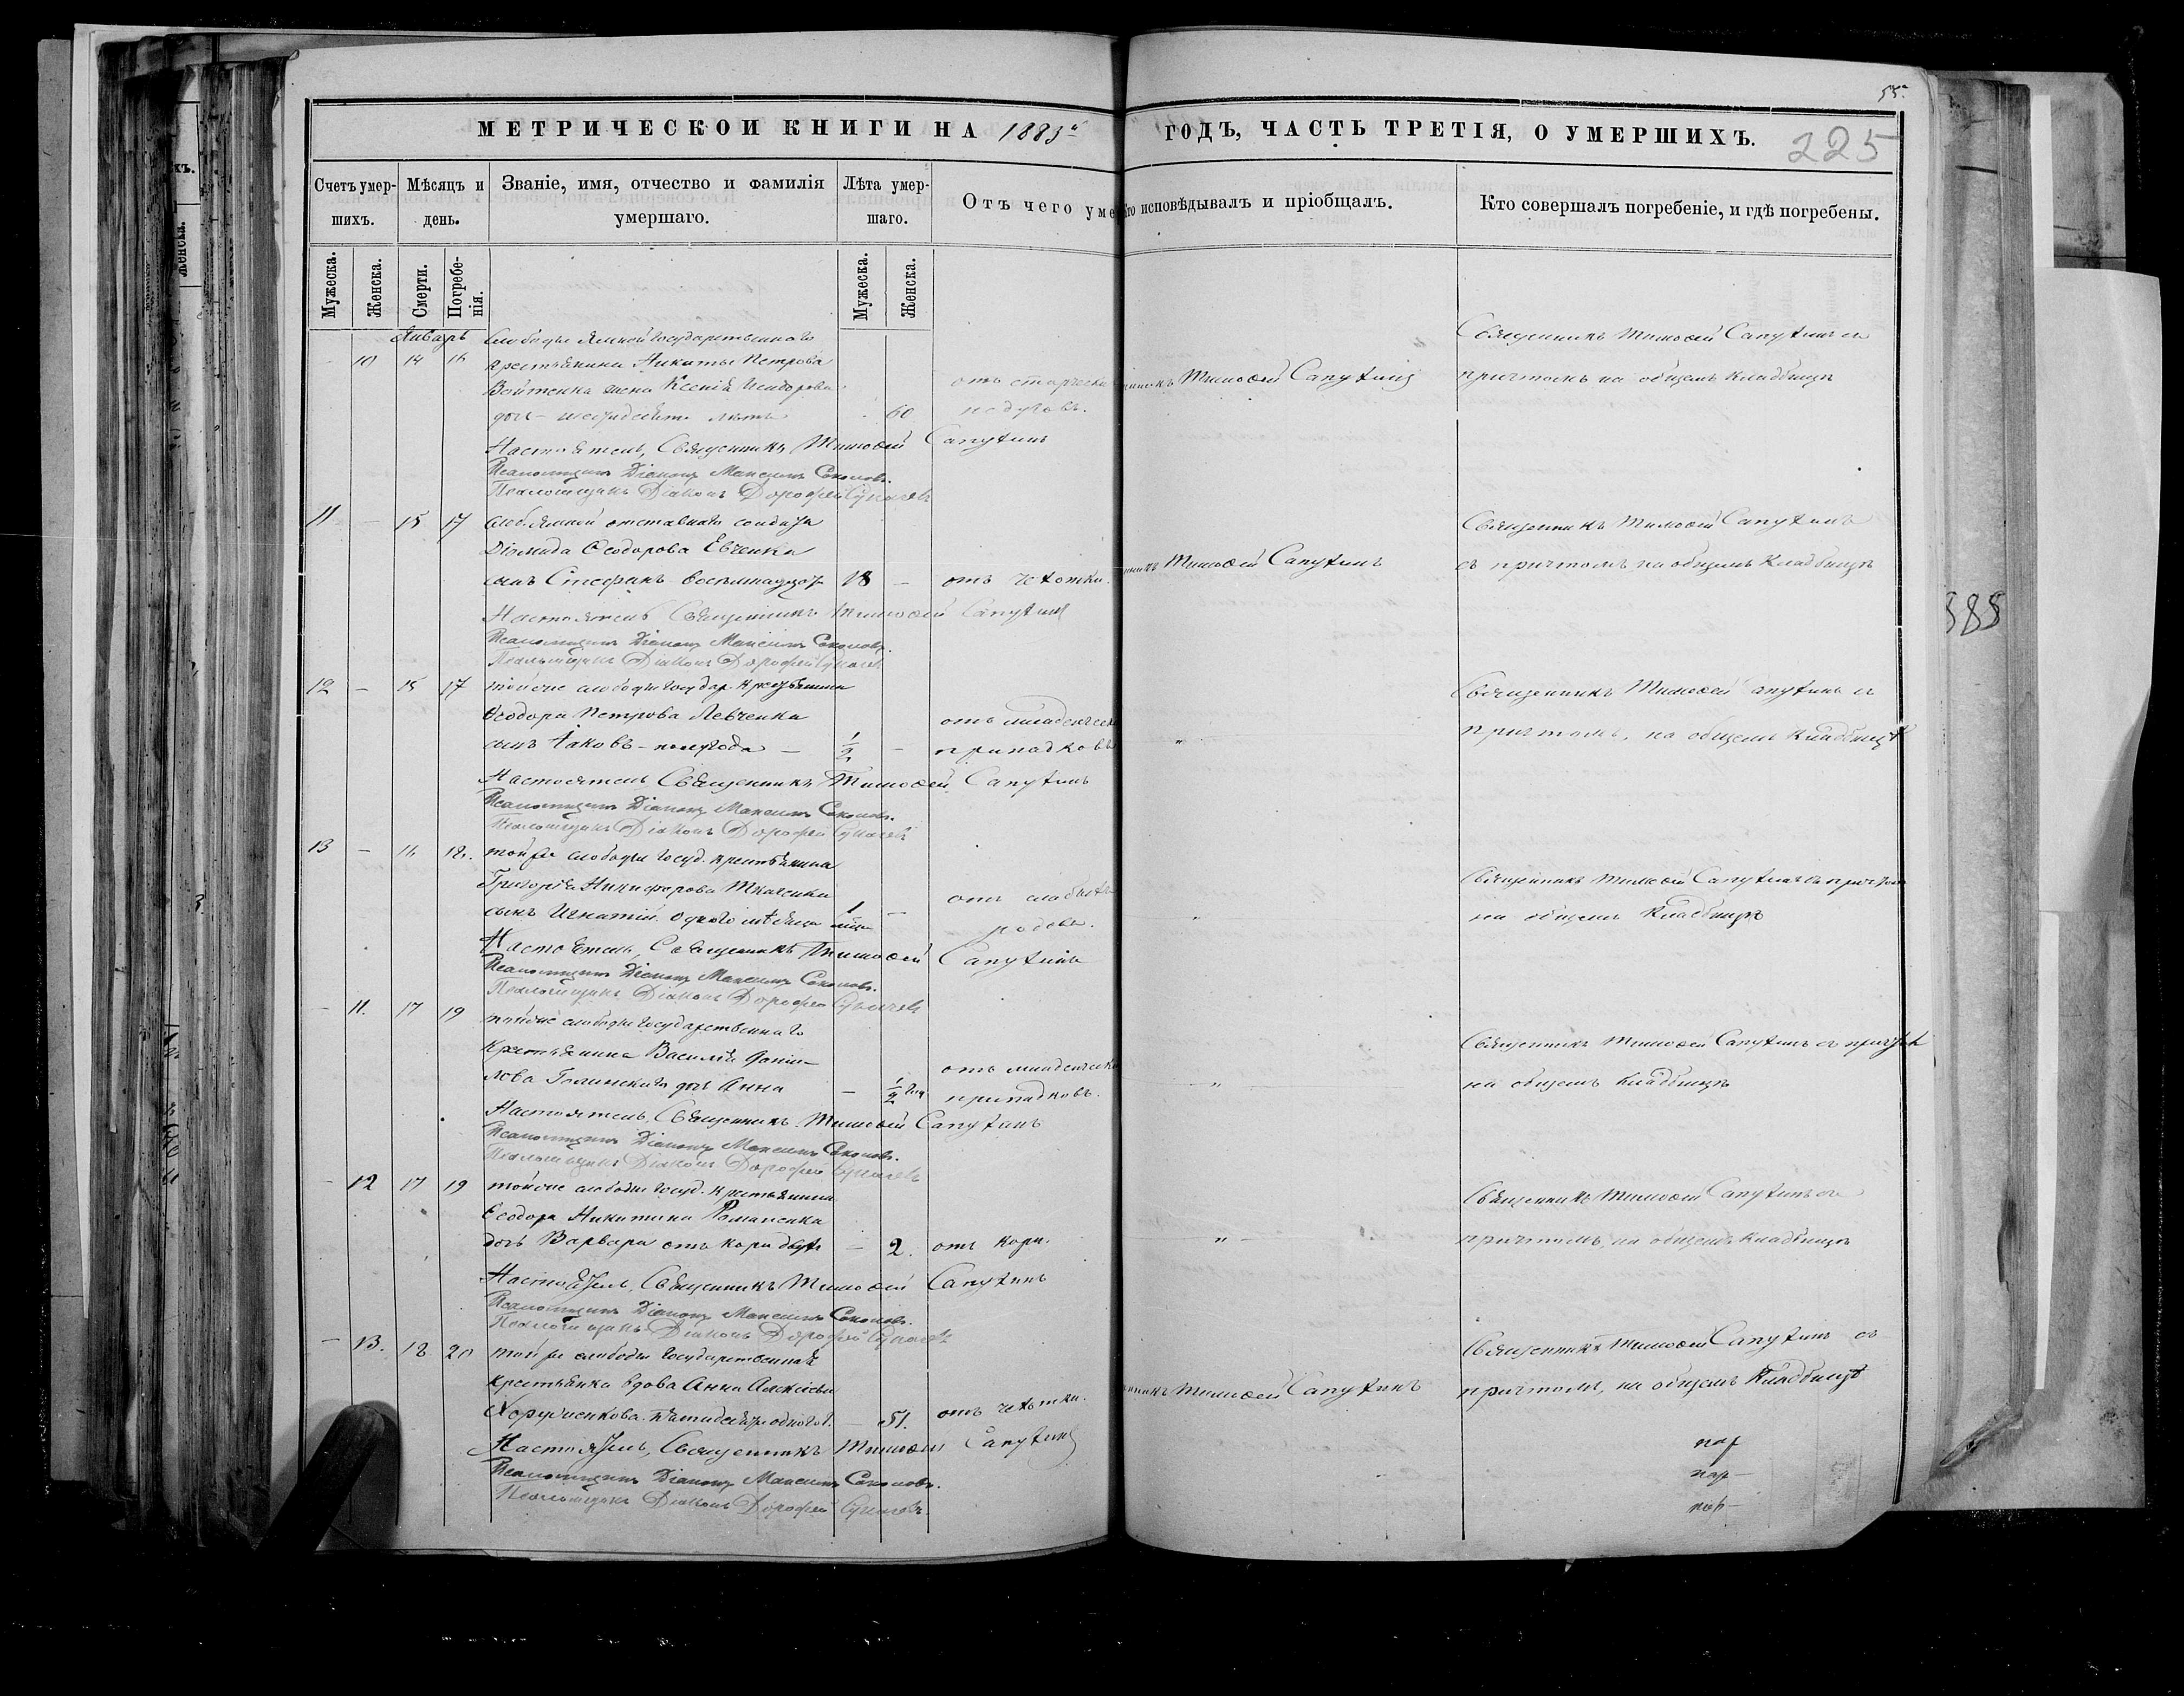 55.
МЕТРИЧЕСКОЙ КНИГИ НА 1883й ГОДЪ, ЧАСТЬ ТРЕТІЯ, О УМЕРШИХЪ.
225
Счетъ умер-
шихъ.
Мѣсяцъ и
день.
Званіе, имя, отчество и фамилія
умершаго.
Лѣта умер-
шаго.
Отъ чего уме
Кто исповѣдывалъ и пріобщалъ.
Кто совершалъ погребеніе, и гдѣ погребены.
Мужеска.
Женска.
Смерти.
Погребе-
нія.
Мужеска.
Женска.
Январь
Слободы Ямной Государственнаго
10 14 16 крестьянина Никиты Петрова
Войтенка жена Ксенія Исидорова
шестидесяти лѣтъ 60
Тимофей Сапухинъ
Священникъ Тимофей Сапухинъ съ
причтомъ на общемъ кладбищѣ
Настоятель, Священникъ Тимофей Сапухинъ
Псаломщикъ Діаконъ Максимъ Соколовъ.
Псаломщикъ Діаконъ Дорофей
11 — 15 17 слоб. Ямной отставнаго солдата
Діомида Ѳеодорова Евченка
сынъ Стефанъ 18 — отъ чахотки.
Тимофей Сапухинъ
Священникъ Тимофей Сапухинъ
съ причтомъ на общемъ кладбищѣ
Настоятель Священникъ Тимофей Сапухинъ
Псаломщикъ Діаконъ Максимъ Соколовъ.
Псаломщикъ Діаконъ Дорофей
12 — 15 17 той же слободы Государ. крестьянина
Ѳеодора Петрова Левченка
сынъ Іаковъ — полугода — 1/2 —
отъ младенческ
припадковъ
"
Священникъ Тимофей Сапухинъ съ
причтомъ, на общемъ кладбищѣ
Настоятель Священникъ Тимофей Сапухинъ
Псаломщикъ Діаконъ Максимъ Соколовъ.
Псаломщикъ Діаконъ Дорофей
13 — 16 18. той же слободы Госуд. крестьянина
Григорія Никифорова Ткаченка
сынъ Игнатій одного мѣсяца 1 —
отъ слабости
родовъ.
"
Священникъ Тимофей Сапухинъ съ причтом
на общемъ кладбищѣ
Настоятель, Священникъ Тимофей Сапухинъ
Псаломщикъ Діаконъ Максимъ Соколовъ.
Псаломщикъ Діаконъ Дорофей
— 11. 17 19 той же слободы Государственнаго
крестьянина Василія
дочь Анна — 1/2
отъ младенческ
припадковъ.
"
Священникъ Тимофей Сапухинъ съ причто
на общемъ кладбищѣ
Настоятель, Священникъ Тимофей Сапухинъ
Псаломщикъ Діаконъ Максимъ Соколовъ.
Псаломщикъ Діаконъ Дорофей
— 12 17 19 той же слободы Госуд. крестьянина
Ѳеодора Никитина Романенка
дочь Варвара отъ кори двухъ — 2. отъ кори.
"
Священникъ Тимофей Сапухинъ съ
причтомъ, на общемъ кладбищѣ
Настоятель, Священникъ Тимофей Сапухинъ
Псаломщикъ Діаконъ Максимъ Соколовъ.
Псаломщикъ Діаконъ Дорофей
— 13. 18 20 той же слободы Государственная
крестьянка вдова Анна Алексѣева
пятидесяти одного — 51. отъ чахотки.
Тимофей Сапухинъ
Священникъ Тимофей Сапухинъ съ
причтомъ, на общемъ кладбищѣ
Настоятель, Священникъ Тимофей Сапухинъ
Псаломщикъ Діаконъ Максимъ Соколовъ.
Псаломщикъ Діаконъ Дорофей
385